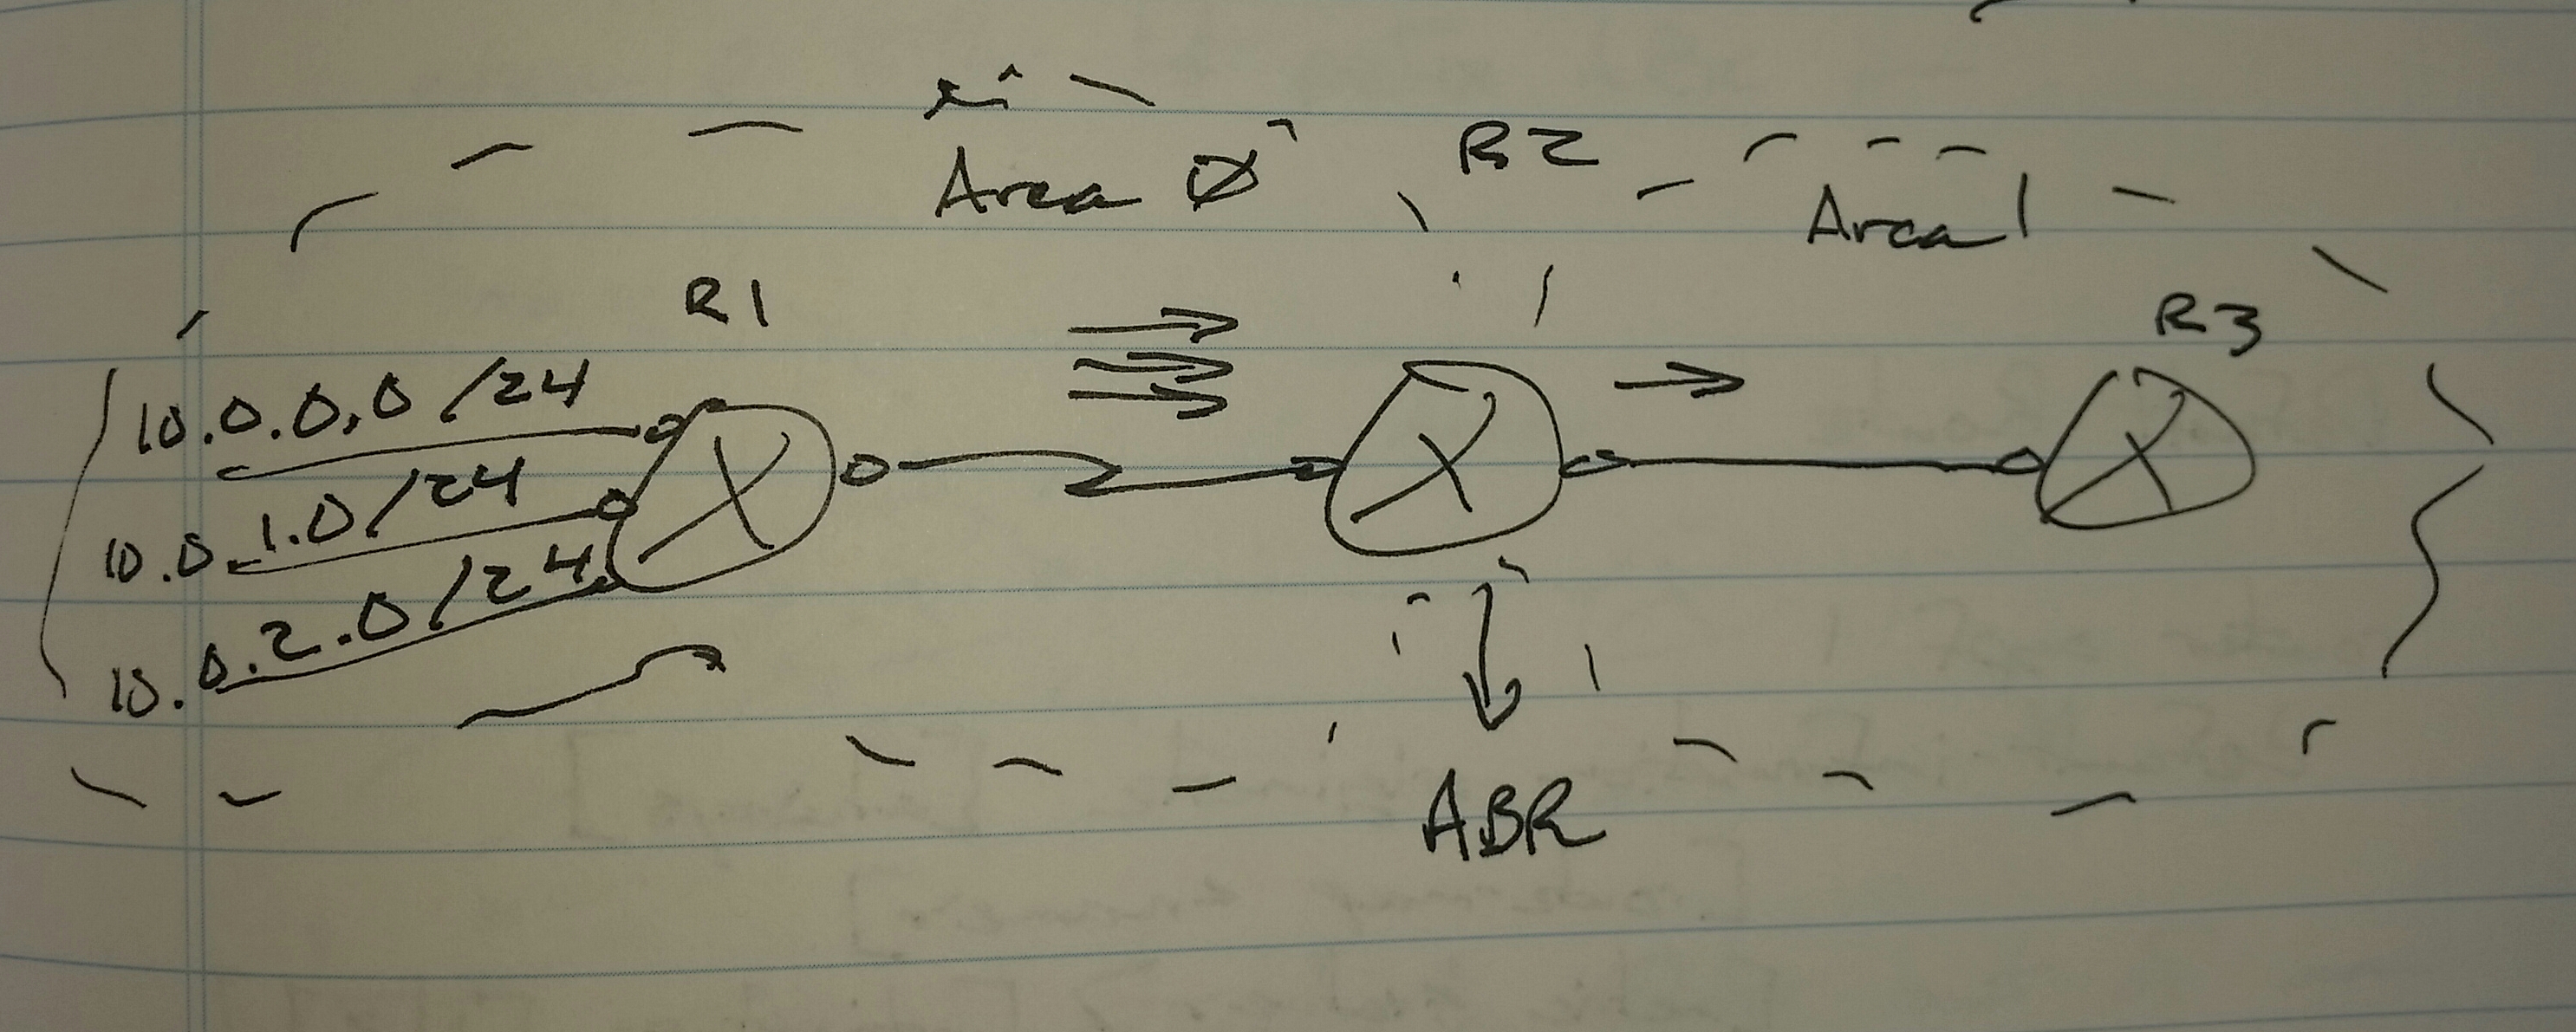 Area 0
R2
Area 1
R1
R3
10.0.0.0/24
10.0.1.0/24
10.0.2.0/24
ABR